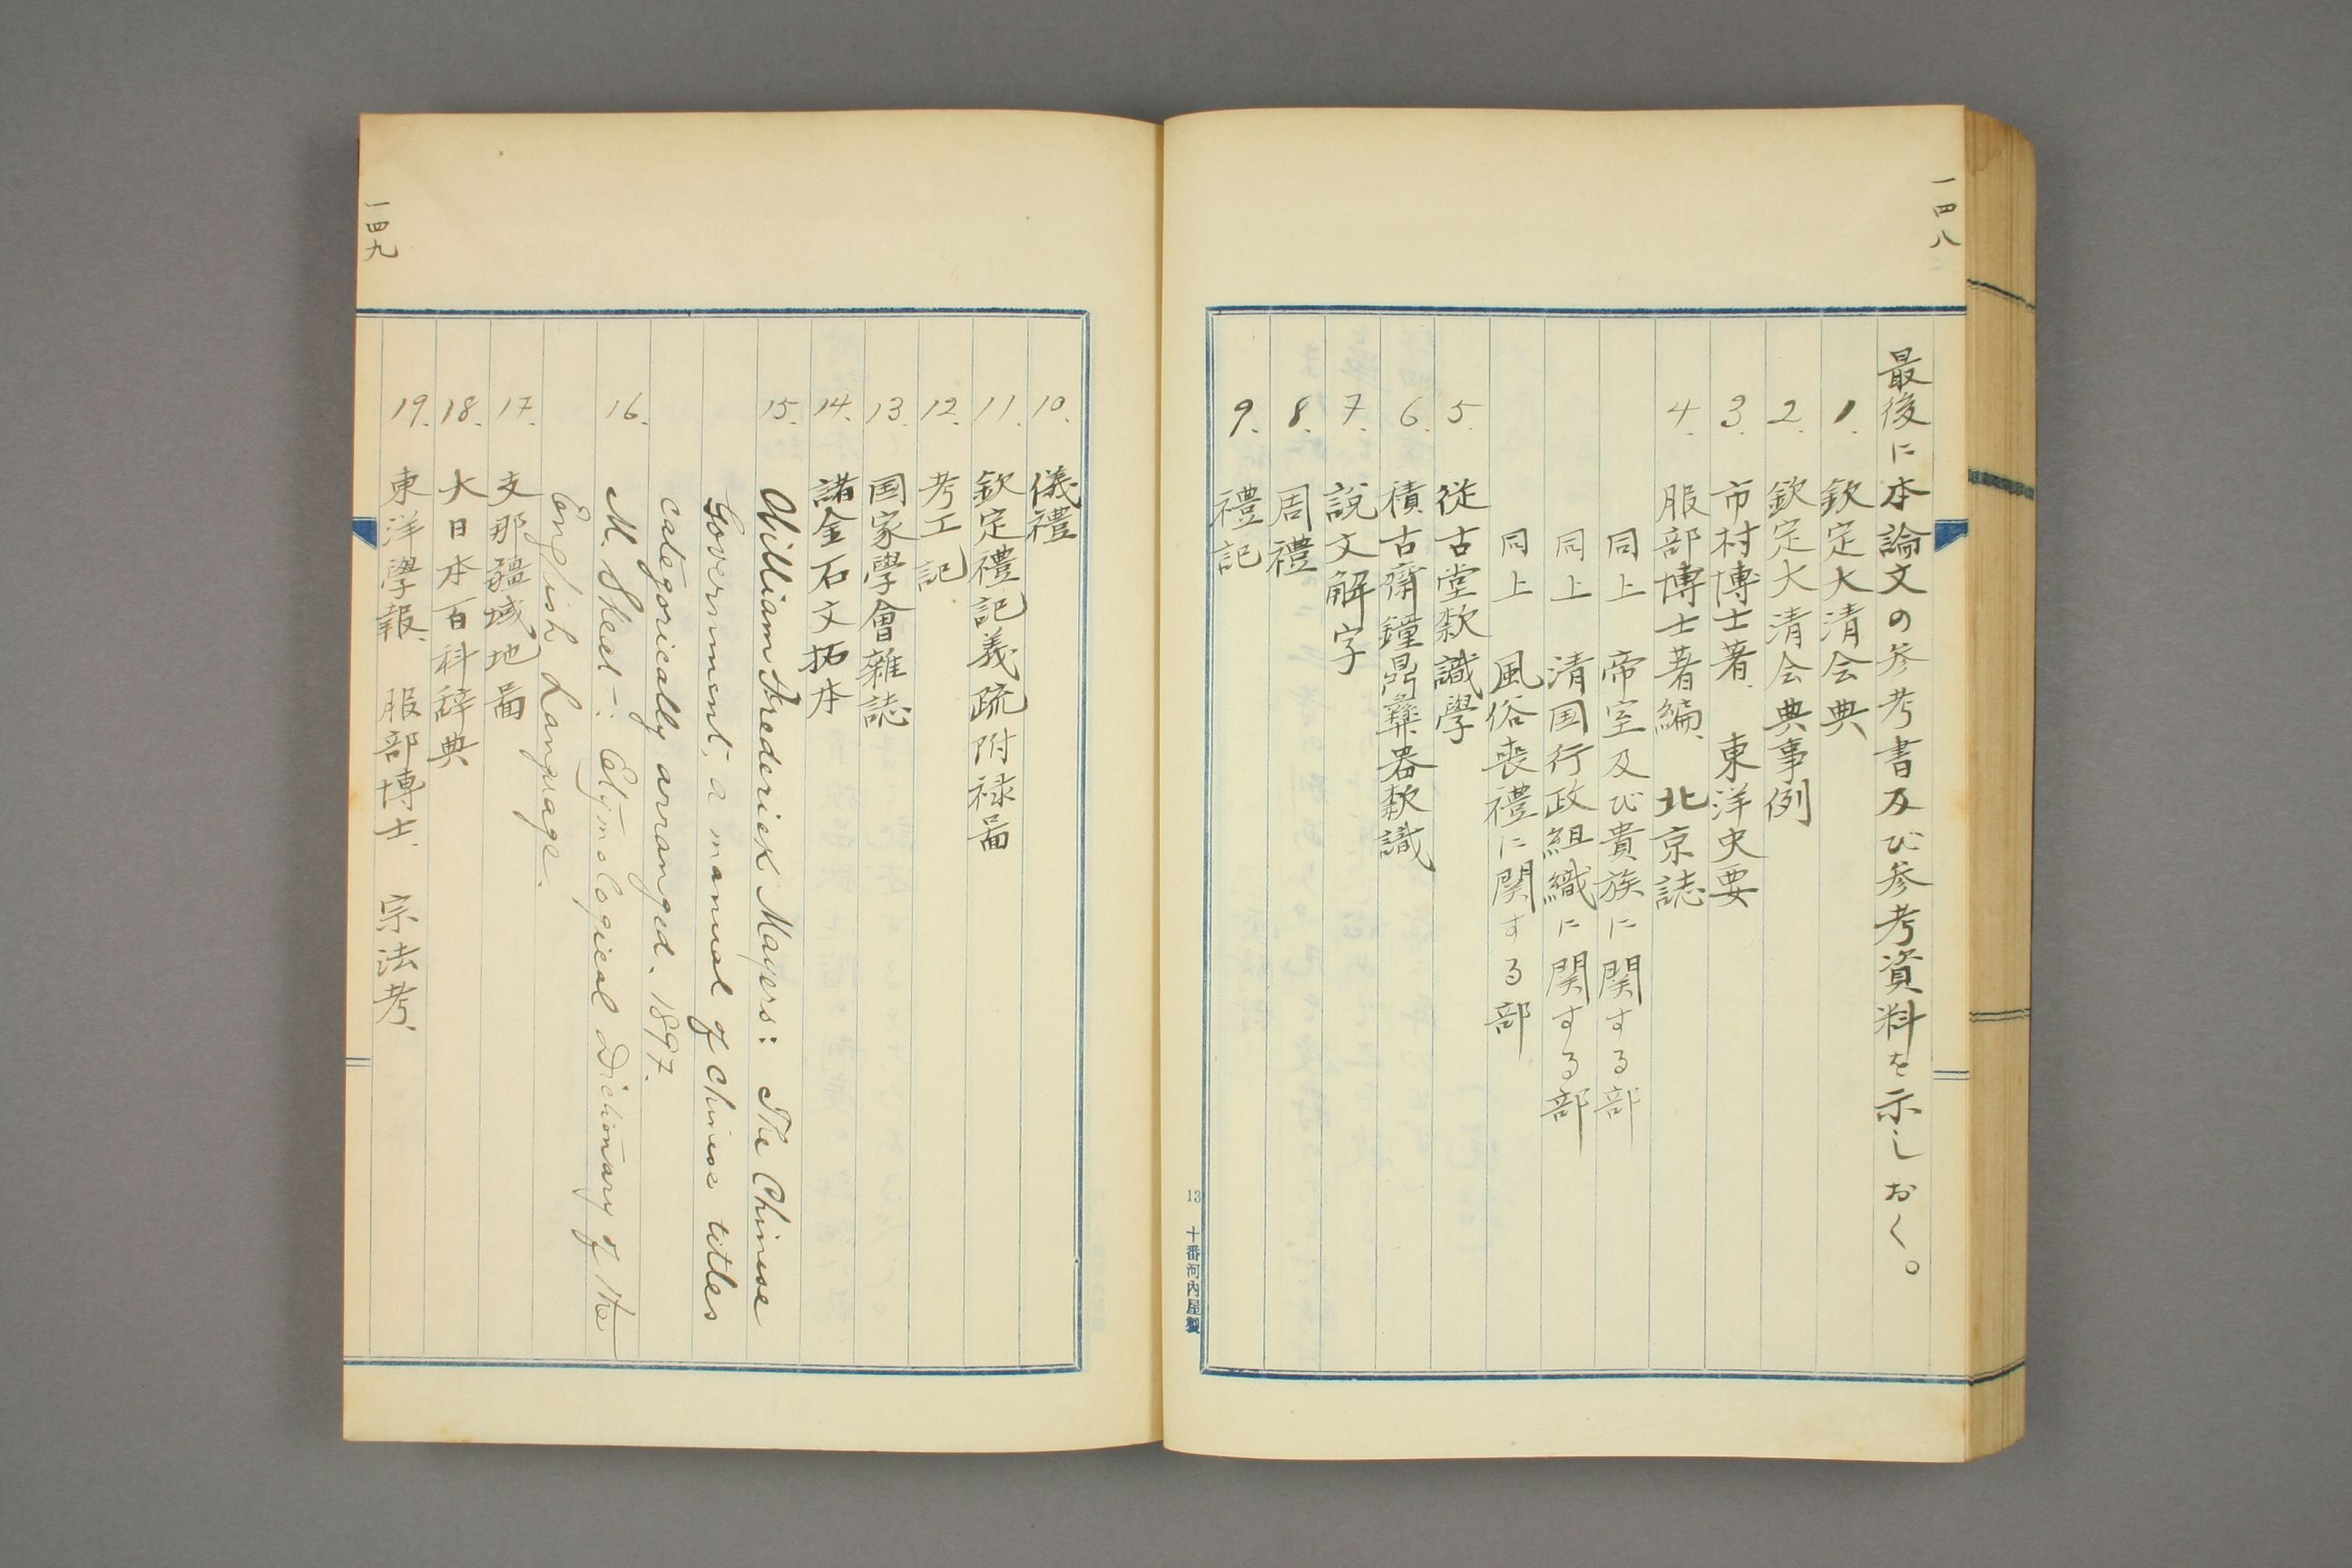 一四八
最後に本論文の参考書及び参考資料を示しおく。
1. 欽定大清会典
2. 欽定大清会典事例
3. 市村博士著、東洋史要
4. 服部博士著編、北京誌
同上 帝室及び貴族に関する部
同上 清国行政組織に関する部
同上 風俗喪禮に関する部
5. 従古堂款識學
6. 積古齋鐘鼎彝器款識
7. 說文解字
8. 周禮
9. 禮記
13 十番河内屋製
一四九
10. 儀禮
11. 欽定禮記義疏附禄啚
12. 考工記
13. 国家學會雜誌
14. 諸金石文拓本
15. William Frederick Mayers: The Chinese
Government, a manual of Chinese titles
categorically arranged. 1897.
16. M. Skeat -: Etymological Dictionary of the
English Language.
17. 支那疆域地啚
18. 大日本百科辞典
19. 東洋學報、服部博士、宗法考、